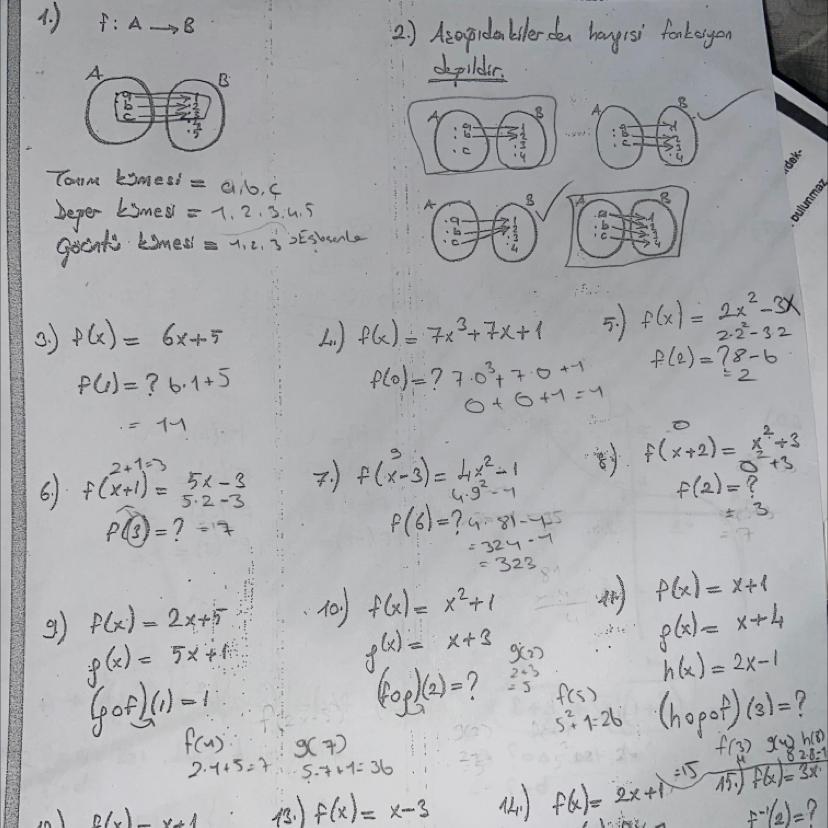 1.) f: A → B
A B
a
b
c
1
2
3
4
5
Tanım kümesi = a, b, c
Değer kümesi = 1, 2, 3, 4, 5
Görüntü kümesi = 1, 2, 3
2.) Aşağıdakilerden hangisi fonksiyon
değildir.
A B
a
b
c
1
2
3
4
A B
a
b
c
1
2
3
4
A B
a
b
c
1
2
3
4
A B
a
b
c
1
2
3
4
bulunmaz
3.) f(x) = 6x+5
f(1) = ? 6.1+5
= 11
4.) f(x) = 7x³+7x+1
f(0) = ? 7.0³+7.0+1
0+0+1=1
5.) f(x) = 2x²-3x
2.2²-3.2
f(2) = ? 8-6
= 2
2+1=3
6.) f(x+1) = 5x-3
5.2-3
f(3) = ? =7
9
7.) f(x-3) = 4x²-1
4.9²-1
f(6) = ? 4.81-1
= 324-1
= 323
0
8.) f(x+2) = x²+3
0²+3
f(2) = ?
= 3
9) f(x) = 2x+5
g(x) = 5x+1
(gof)(1) = 1
f(1) g(7)
2.1+5=7 5.7+1=36
10.) f(x) = x²+1
g(x) = x+3
(fog)(2) = ?
g(2)
2+3
=5
f(5)
5²+1=26
11) f(x) = x+1
g(x) = x+4
h(x) = 2x-1
(hogof)(3) = ?
f(3) g(4) h(8)
4 8 2.8-1
=15
12) f(x) = x+1
13.) f(x) = x-3
14.) f(x) = 2x+1
15.) f(x) = 3x
f⁻¹(2) = ?